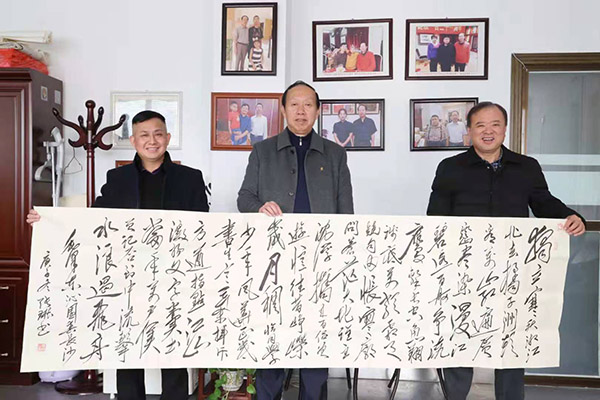 獨立寒秋湘江
北去橘子洲頭
看萬山紅遍層
林盡染漫江
碧透百舸爭流
鷹擊長空魚翔
淺底萬類霜天
競自由悵寥廓
問蒼茫大地誰主
沉浮攜來百侶曾
遊憶往昔崢嶸
歲月稠恰同學
少年風華正茂
書生意氣揮斥
方遒指點江山
激揚文字糞土
當年萬戶侯
曾記否到中流擊
水浪遏飛舟
毛澤東沁園春長沙
庚子冬